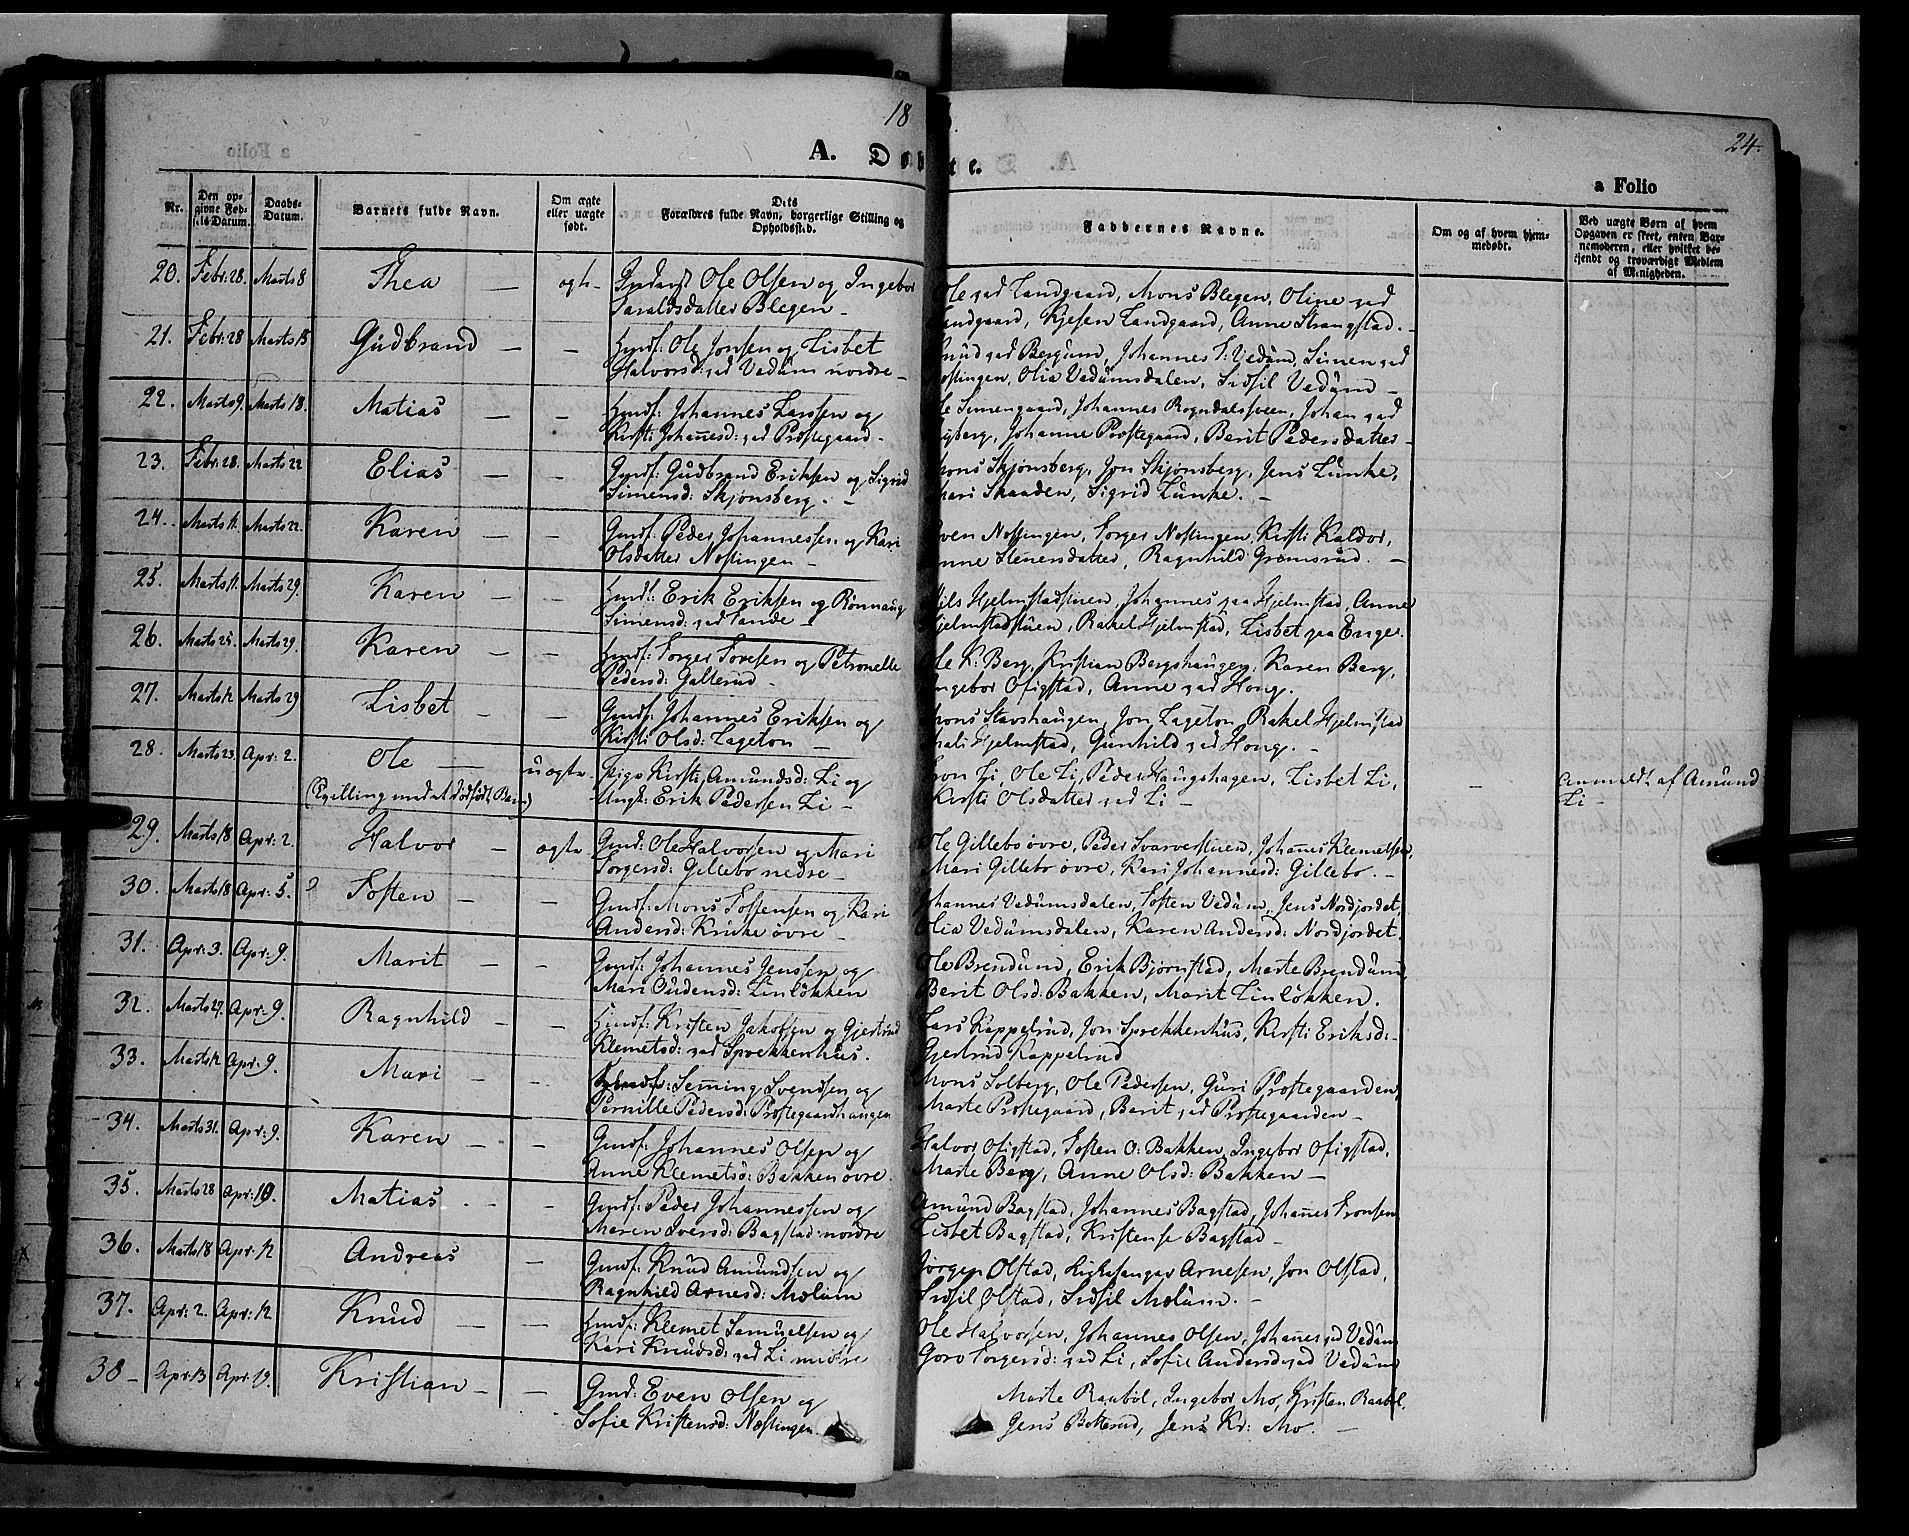 18
24.
A. Døbte.
a Folio
Nr.
Den opgivne Fødsels-Datum.
Daabs-Datum.
Barnets fulde Navn.
Om ægte eller uægte født.
Dets Forældres fulde Navn, borgerlige Stilling og Opholdssted.
Faddernes Navne.
Om og af hvem hjemmedøbt.
Ved uægte Børn af hvem Opgaven er skeet, enten Barnemoderen, eller hvilket bekjendt og troværdigt Medlem af Menigheden.
20. Febr: 28. Marts 8 Thea — ægte- Ole Olsen og Ingebor
Haraldsdatter Blegen —
Ole ved Landgaard, Mons Blegen, Oline ved
Landgaard, Kjesten Landgaard, Anne Strangstad. —
21. Febr: 28 Marts 15 Gudbrand — — Husf: Ole Jonsen og Lisbet
Halvorsd: ved Vedum nordre —
Knud ved Bergum, Johannes S: Vedum, Simen ved
Nostingen, Olia Vedumsdalen, Sidsil Vedum —
22. Marts 9. Marts 18. Matias — — Husf: Johannes Larssen og
Kirsti Johanesd: ved Prestegaard —
Ole Simengaard, Johannes Rogndalsveen, Johan ved
Johanne Prestegaard, Berit Pedersdatter —
23. Febr: 28. Marts 22 Elias — — Gmdf: Gudbrand Eriksen og Sigrid
Simensd: Skjønsberg. —
Mons Skjønsberg, Jon Skjønsberg, Jens Lunke,
Mari Skaaden, Sigrid Lunke. —
24. Marts 11. Marts 22. Karen — — Gmdf: Peder Johannessen og Kari
Olsdatter Nostingen —
Even Nostingen, Torger Nostingen, Kirsti Kaldor,
Anne Stenersdatter, Ragnhild Gromsrud. —
25. Marts 11. Marts 29. Karen — — Husf: Erik Eriksen og Rønnaug
Simensd: ved Tande —
Nils Hjelmstadstuen, Johannes paa Hjelmstad, Anne
Hjelmstadstuen, Rakel Hjelmstad, Lisbet paa Enge.
26. Marts 25. Marts 29. Karen — — Husf: Torger Toresen og Petronelle
Pedersd: Gallerud —
Ole K: Berg, Kristian Bergshaugen, Karen Berg,
Ingebor Ofigstad, Anne ved Hong.
27. Marts 12. Marts 29 Lisbet — — Gmdf: Johannes Eriksen og
Kirsti Olsd: Lageton —
Mons Stavshaugen, Jon Lageton, Rakel Hjelmstad
Mali Hjelmstad, Gunhild ved Hong. —
28. Marts 23. Apr: 2. Ole — uægte. Pige Kirsti Amundsd: Li og
(Tvilling med et dødfødt Barn) Ungk: Erik Pedersen Li —
Jon Li, Ole Li, Peder Haugshagen, Lisbet Li,
Kirsti Olsdatter ved Li —
—
Anmeldt af Amund
Li —
29. Marts 18 Apr: 2. Halvor — ægte. Gmd: Ole Halvorsen og Mari
Torgersd: Gillebo nedre —
Ole Gillebo øvre, Peder Svarverstuen, Johanes Klemetsen,
Mari Gillebo øvre, Kari Johannesd: Gillebo. —
30. Marts 18 Apr: 5. Tosten — — Gmdf: Mons Tostensen og Kari
Andersd: Kruke øvre —
Johannes Vedumsdalen, Tosten Vedum, Jens Nordjordet,
Olia Vedumsdalen, Karen Andersd: Nordjordet.
31. Apr: 3. Apr: 9. Marit — — Gmdf: Johannes Jenssen og
Mari Gudensd: Linløkken
Ole Brendund, Erik Bjørnstad, Marte Brendund
Berit Olsd: Bakken, Marit Linløkken.
32. Marts 27. Apr: 9. Ragnhild — — Husf: Kristen Jakobsen og Gjertrud
Klemetsd: ved Sprekkenhus.
Lars Kappelrud, Jon Sprekkenhus, Kirsti Eriksd:
Gjertrud Kappelrud
33. Marts 12 Apr: 9. Mari — — Husf: Seming Svendsen og
Pernille Pedersd: Prostegaardhaugen
Mons Solberg, Ole Pedersen, Guri Prostegaarden
Marte Prostegaard, Berit ved Prostegaarden —
34. Marts 31. Apr: 9. Karen — — Gmdf: Johannes Olsen og
Anne Klemetsd: Bakken øvre.
Halvor Ofigstad, Tosten O: Bakken, Ingebor Ofigstad,
Marte Berg, Anne Olsd: Bakken —
35. Marts 28 Apr: 10. Matias. — — Gmdf: Peder Johannessen og
Maren Iversd: Bagstad nordre
Amund Bagstad, Johannes Bagstad, Johanes Tronsen
Lisbet Bagstad, Kristense Bagstad —
36. Marts 18 Apr: 12 Andreas — Gmdf: Knud Amundsen og
Ragnhild Arnesd: Mælum
Jørgen Olstad, Arnesen, Jon Olstad,
Sidsil Olstad, Sidsil Mælum. —
37. Apr: 2. Apr: 12 Knud — — Husf: Klemet Samuelsen og
Kari Knudsd: ved Li midtre
Ole Halvorsen, Johannes Olsen, Johanes ved Vedum
Goro Torgersd: ved Li, Sofie Andersd ved Vedum
38 — Apr: 13 Apr: 19. Kristian — — Gmd: Even Olsen og
Sofie Kristensd: Nostingen.
Marte Raabøl, Ingebor Mo, Kristen Raabøl
Jens Botterud, Jens Kr: Mo. —